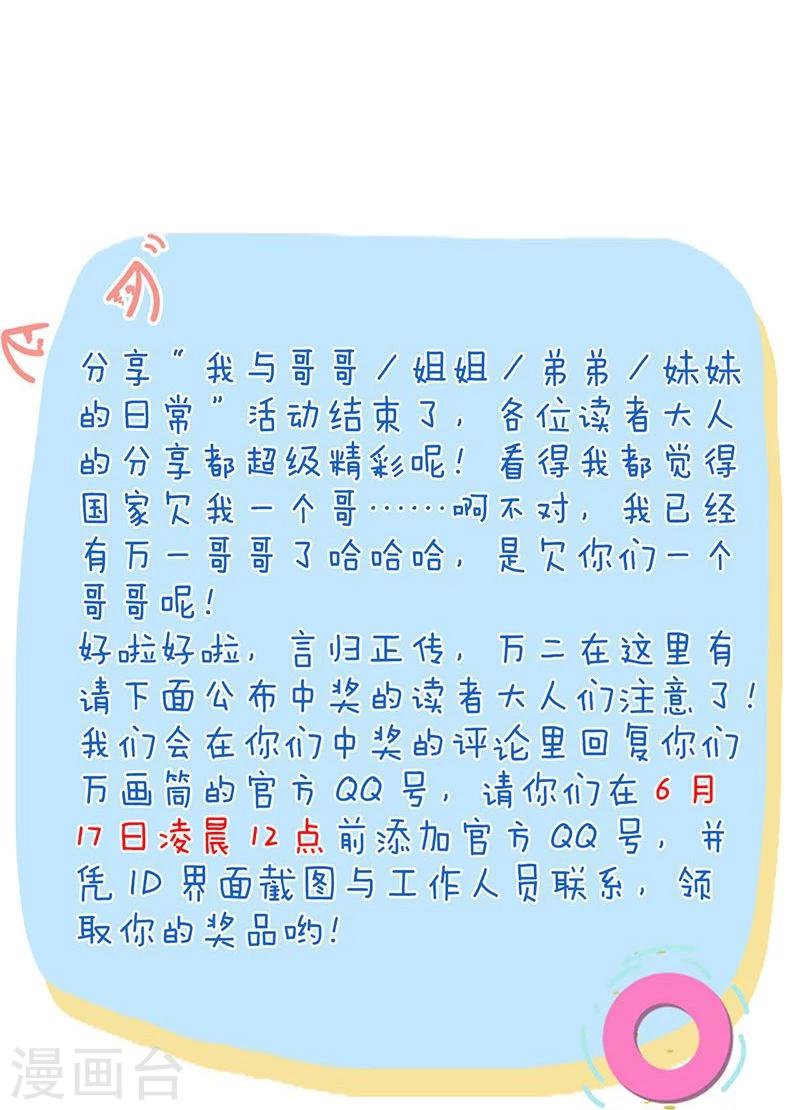 分享“我与哥哥/姐姐/弟弟/妹妹
的日常”活动结束了，各位读者大人
的分享都超级精彩呢！看得我都觉得
国家欠我一个哥……啊不对，我已经
有万一哥哥了哈哈哈，是欠你们一个
哥哥呢！
好啦好啦，言归正传，万二在这里有
请下面公布中奖的读者大人们注意了！
我们会在你们中奖的评论里回复你们
万画筒的官方QQ号，请你们在6月
17日凌晨12点前添加官方QQ号，并
凭ID界面截图与工作人员联系，领
取你的奖品哟！
漫画台